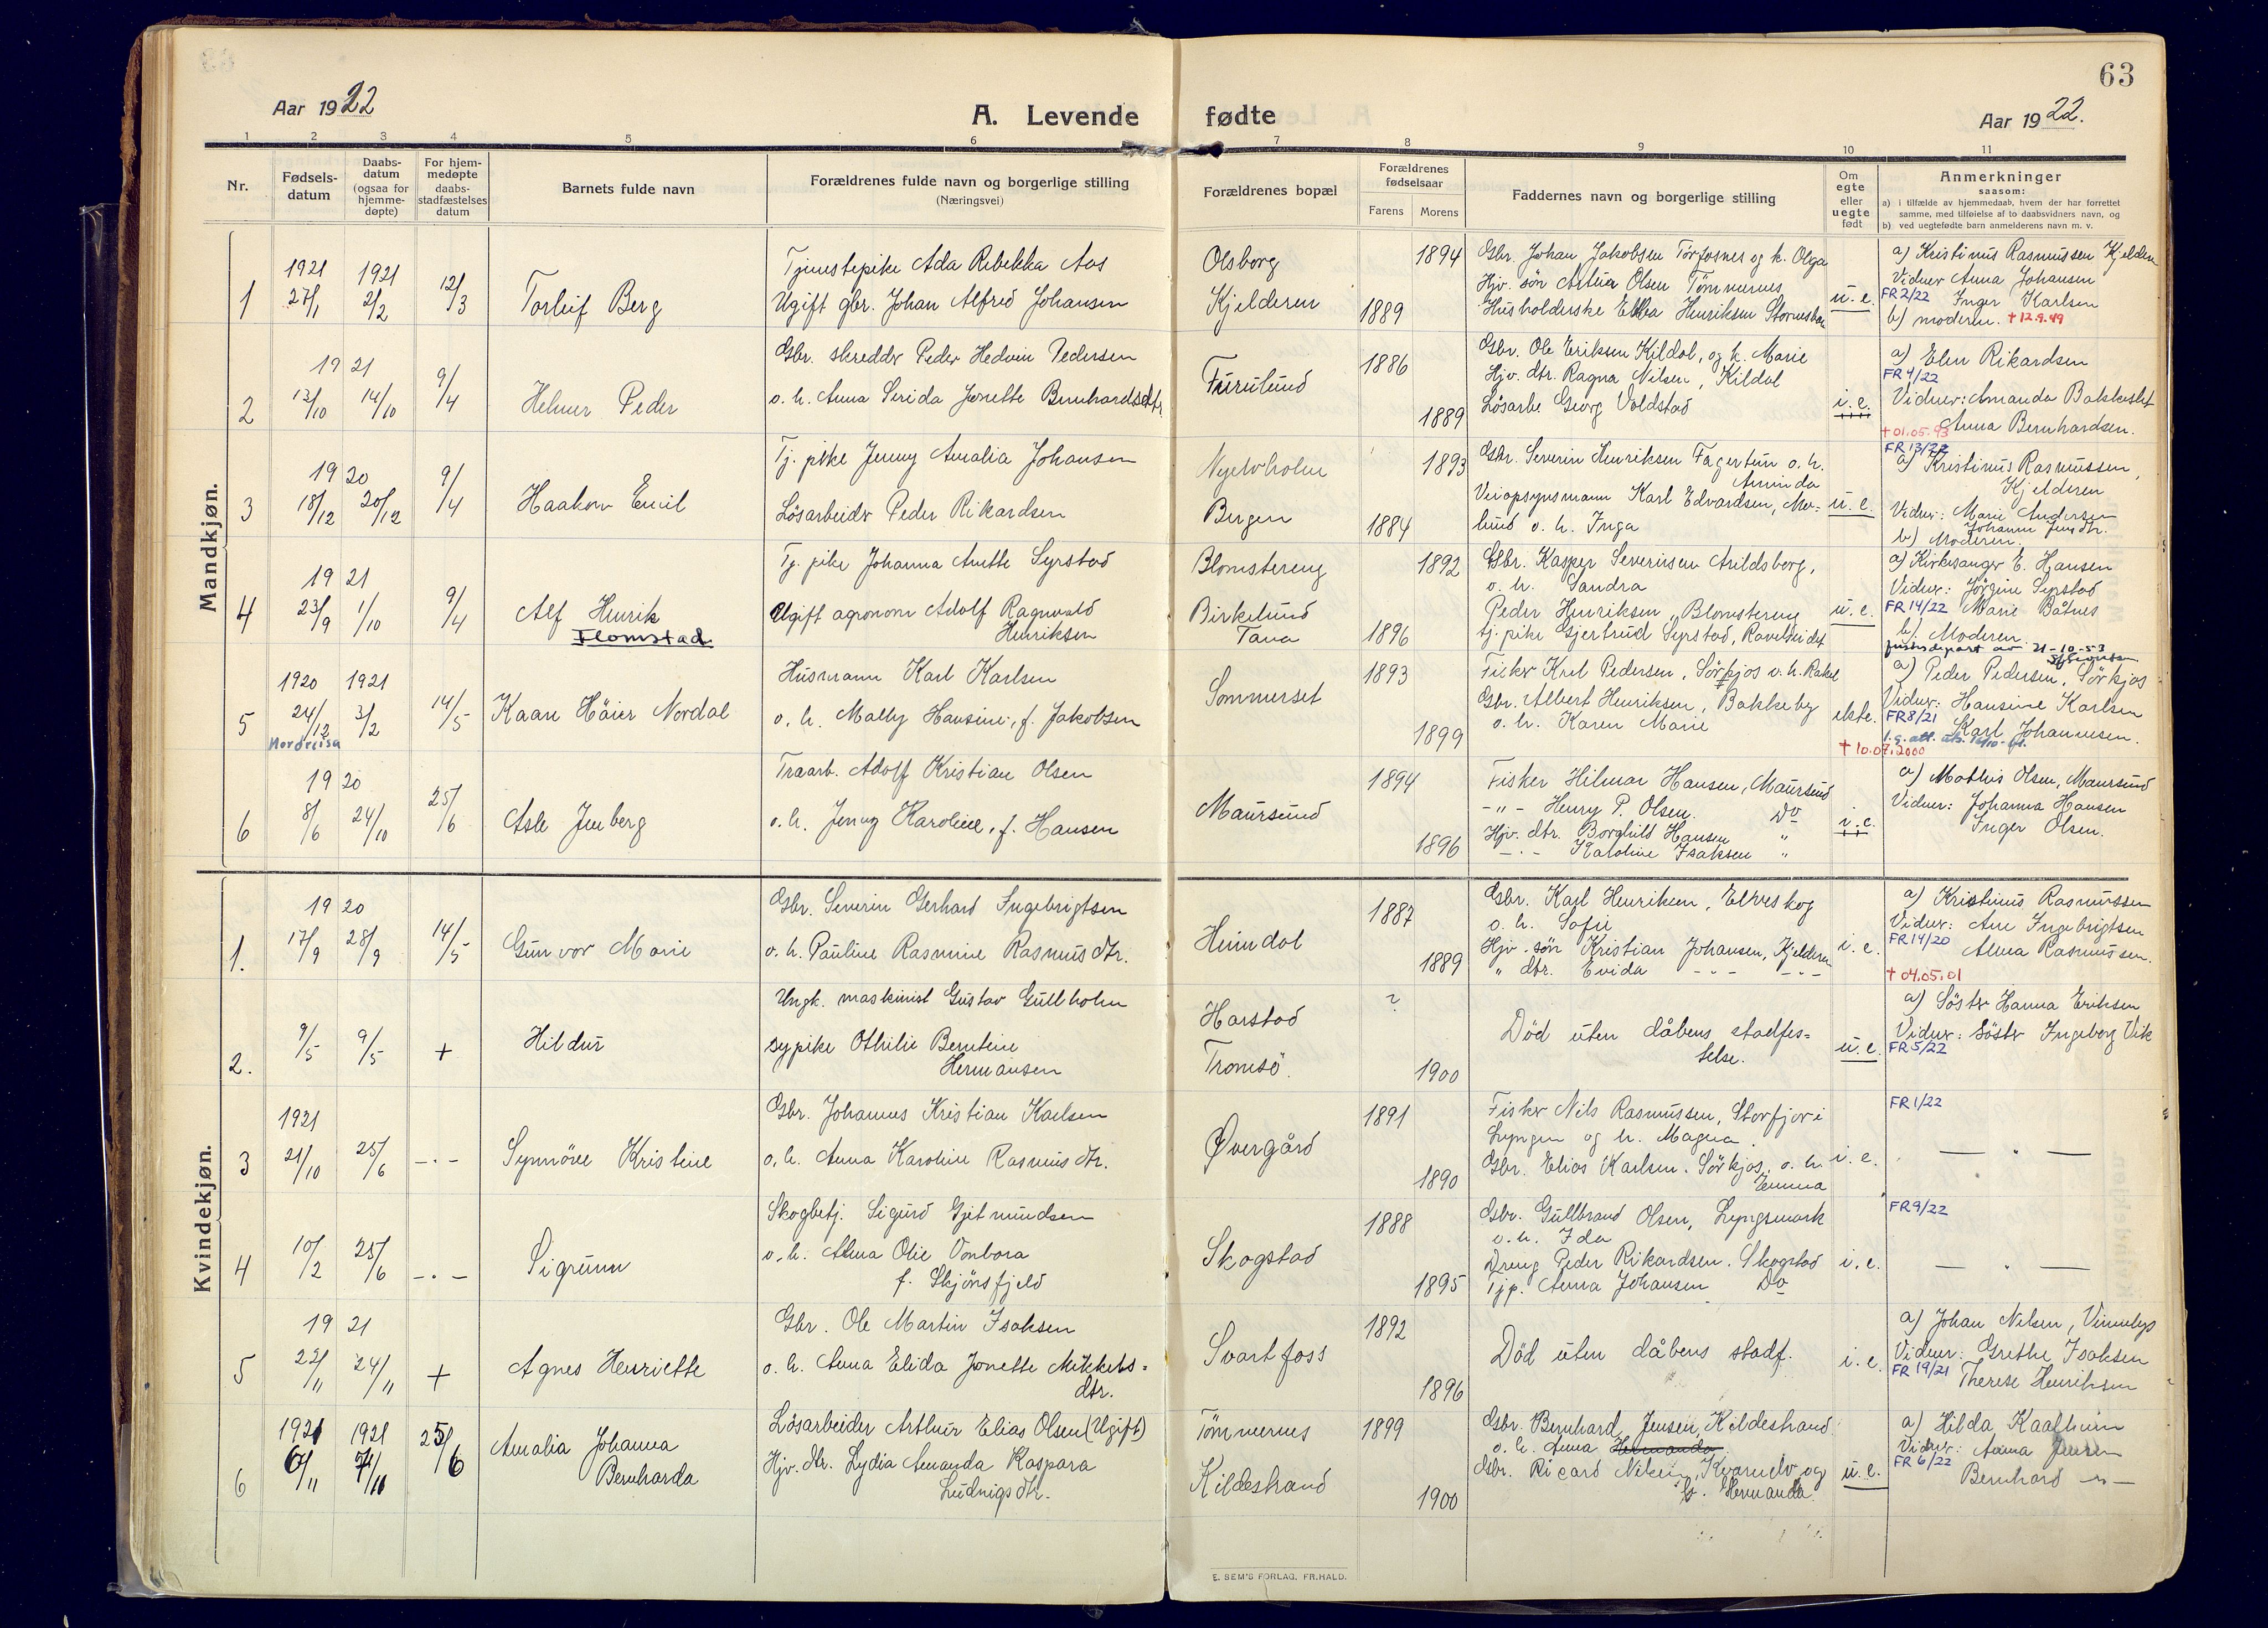 63
Aar 1922
A. Levende fødte
Aar 1922.
1 2 3 4 5 6 7 8 9 10 11
Nr.
Fødsels-
datum
Daabs-
datum
(ogsaa for
hjemme-
døpte)
For hjem-
medøpte
daabs-
stadfæstelses
datum
Barnets fulde navn
Forældrenes fulde navn og borgerlige stilling
(Næringsvei)
Forældrenes bopæl
Forældrenes
fødselsaar
Farens Morens
Faddernes navn og borgerlige stilling
Om
egte
eller
uegte
født
Anmerkninger
saasom:
a) i tilfælde av hjemmedaab, hvem der har forrettet
samme, med tilføielse af to daabsvidners navn, og
b) ved uegtefødte barn anmelderens navn m. v.
Mandkjøn.
1
1921 27/1
1921 2/2
12/3
Torleif Berg
Tjenestepike Ada Rebekka Aas
Ugift gbr. Johan Alfred Johansen
Olsborg
Kjelderen
1889
1894
Gbr. Johan Jakobsen og k. Olga
Hjv. søn Olsen Tømmernes
Husholderske Henriksen
u. e.
a) Kristinus Rasmussen Kjelderen
Vidner Anna Johansen
FR 2/22 Inger Karlsen
b) moderen. † 12.9.49
2
1921
13/10
14/10
9/4
Helmer Peder
Gbr. skredder Peder Hedvin Pedersen
o. h. Anna Serida Jonette Bernhardsdtr
Furulund
1886
1889
Gbr. Ole Eriksen Kildal, og h. Marie
Hjv. dtr. Ragna Nilsen, Kildal
Løsarbe Georg Voldstad
i. e.
a) Elen Rikardsen
FR 4/22
Vidner: Amanda Bakkeslet
Anna Bernhardsen.
† 01.05.93
3
1920
18/12
20/12
9/4
Haakon Emil
Tj. pike Jenny Amalia Johansen
Løsarbeider Peder Rikardsen
Nyelvholm
Bergen
1884
1893
Gbr. Severin Henriksen Fagertun o. h.
Arninda
Veiopsynsmann Karl Edvardsen, Mo-
lund o. h. Inga
u. e.
FR 13/22
a) Kristinus Rasmussen,
Kjelderen
Vidner: Marie Andersen
Johanna Jensdtr.
b) Moderen.
4
1921
23/9
1/10
9/4
Alf Henrik
Flomstad
Tj. pike Johanna Anette Syrstad
Ugift agronom Adolf Ragnvald
Henriksen
Blomstereng
Birkelund
Tana
1896
1892
Gbr. Kasper Severinsen Arildsborg,
o. h. Sandra
Peder Henriksen, Blomstereng
tj. pike Gjertrud Syrstad,
u. e.
a) Kirkesanger E. Hansen
Vidner: Jørgine Syrstad
FR 14/22 Marie Båtnes
b) Moderen.
justisdepart av 21-10-53
5
1920 24/12
1921 3/2
14/5
Nordreisa
Kaare Høier Nordal
Husmann Karl Karlsen
o. h. Mally Hansine, f. Jakobsen
Sommerset
1893
1899
Fisker Karl Pedersen, Sørkjos o. h. Rakel
Gbr. Albert Henriksen, Bakkeby
o. h. Karen Marie
ekte.
a) Peder Pedersen, Sørkjos
Vidner: Hansine Karlsen
FR 8/21
Karl Johannesen.
† 10.07.2000
6
1920
8/6
24/10
25/6
Asle Jenberg
Traarb. Adolf Kristian Olsen
o. h. Jenny Karoline, f. Hansen
Maursund
1894
1896
Fisker Hilmar Hansen, Maursund
-"- Henry P. Olsen. Do
Hjv. dtr. Borghild Hansen "
-"- Karoline Isaksen "
i. e.
a) Mathis Olsen, Maursund
Vidner: Johanna Hansen
Inger Olsen.
Kvindekjøn.
1.
1920
17/9
28/9
14/5
Gunvor Marie
Gbr. Severin Gerhard Ingebrigtsen
o. h. Pauline Rasmine Rasmusdtr.
Heimdal
1887
1889
Gbr. Karl Henriksen, Elveskog
o. h. Sofie
Hjv. søn Kristian Johansen, Kjelderen
" dtr. Evida -"- -"-
i. e.
a) Kristinus Rasmussen
Vidner: Ane Ingebrigtsen
FR 14/20
Alma Rasmussen.
† 04.05.01
2.
9/5
9/5
+
Hildur
Ungk. maskinist Gustav Gullholm
sypike Othilie Berntine
Hermansen
Harstad
Tromsø.
?
1900
Død uten dåbens stadfes=
telse.
u. e.
a) Søster Hanna Eriksen
Vidner: Søster Ingeborg Vik
FR 5/22
3
1921
21/10
25/6
-"-
Synnøve Kristine
Gbr. Johannes Kristian Karlsen
o. h. Anna Karoline Rasmusdtr.
Øvergård
1891
1890
Fisker Nils Rasmussen, Storfjor i
Lyngen og h. Magna.
Gbr. Elias Karlsen. Sørkjos, o. h.
Emma
i. e.
FR 1/22
— " —
4
10/2
25/6
-"-
Sigrunn
Skogbetj. Sigurd Gjetmundsen
o. h. Alma Olie Vonbora
f. Skjønsfjeld
Skogstad
1888
1895
Gbr. Gullbrand Olsen, Lyngsmark
o. h. Ida
Dreng Peder Rikardsen. Skogstad
Tjp. Anna Johansen Do
i. e.
FR 9/22
— " —
5
1921
22/11
24/11
+
Agnes Henriette
Gbr. Ole Martin Isaksen
o. h. Anna Elida Jonette Mikkels=
dtr.
Svartfoss
1892
1896
Død uten dåbens stadf.
i. e.
a) Johan Nilsen,
Vidner: Grethe Isaksen
FR 19/21 Therese Henriksen
6
1921 6/11
1921
25/6
Amalia Johanna
Bernharda
Løsarbeider Arthur Elias Olsen (Ugift)
Hjv. dtr. Lydia Amanda Kaspara
Ludvigsdtr.
Tømmernes
Kildestrand
1899
1900
Gbr. Bernhard Jensen Kildestrand
o. h. Anna Hermanda.
Gbr. Ricard Nilsen, og
h. Hermanda.
u. e.
a) Hilda Kaalhein
Vidner: Anna Jensen
FR 6/22
Bernhard -"-
E. SEM'S FORLAG. FR.HALD.